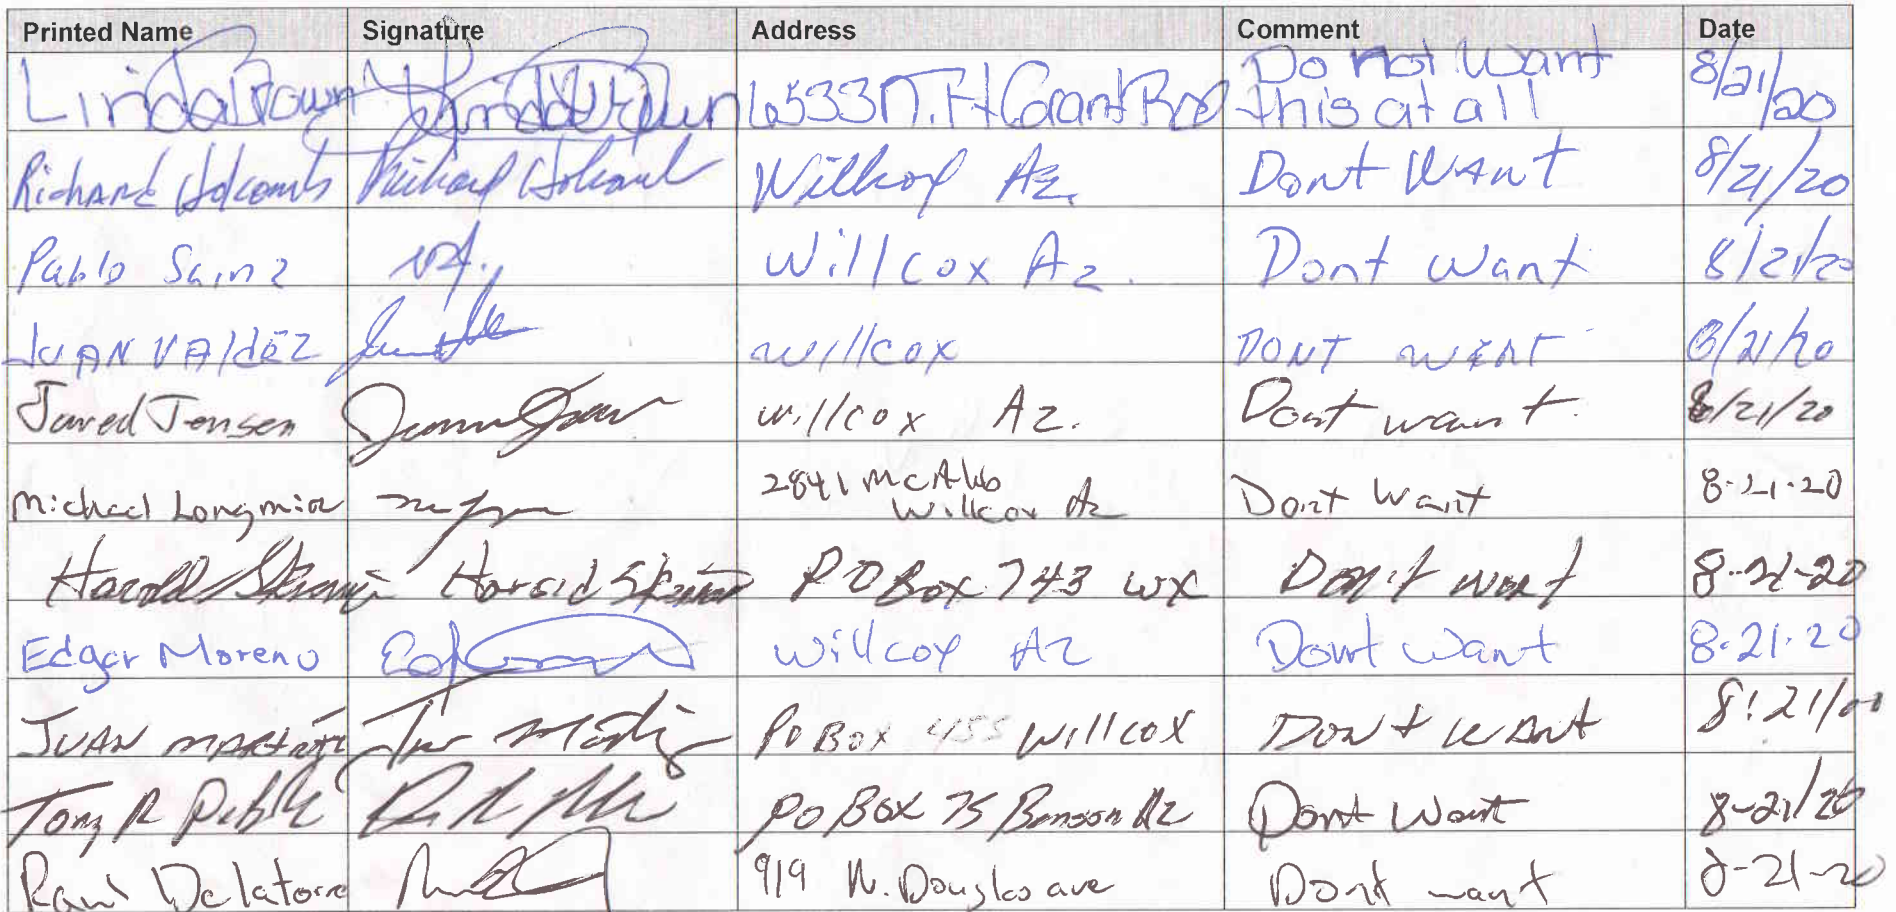 Printed Name Signature Address Comment Date
Linda Brown Linda Brown 6533 N. Ft Grant Rd Do not want this at all 8/21/20
Richard Holcomb Richard Holcomb Willcox Az. Dont Want 8/21/20
Pablo Sainz Willcox Az. Dont Want 8/21/20
JUAN VAldEZ willcox DONT WANT 8/21/20
Jared Jensen willcox Az. Dont want. 8/21/20
Michael Longmire 2841 Willcox Az Dont Want 8-21-20
Harold Harold PO Box 743 WX Don't want 8-21-20
Edgar Moreno Willcox Az Dont Want 8-21-20
JUAN MARTINEZ PO Box 455 Willcox DONT WANT 8/21/20
Tony R PO Box 75 Benson Az Dont Want 8-21/20
Raul Delatorre 919 N. Douglas ave Dont want 8-21-20